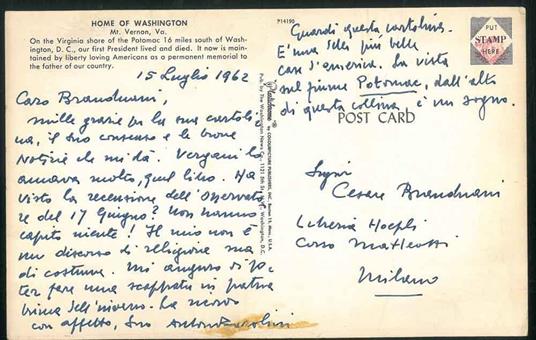 HOME OF WASHINGTON
Mt. Vernon, Va.
On the Virginia shore of the Potomac 16 miles south of Wash-
ington, D. C., our first President lived and died. It now is main-
tained by liberty loving Americans as a permanent memorial to
the father of our country.
15 Luglio 1962
Caro Branduani,
mille grazie per la sua cartoli-
na, il suo consenso e le buone
notizie che mi dà. Vergani lo
amava molto, quel libro. Ha
visto la recensione dell'Osservato-
re del 17 Giugno? Non hanno
capito niente! Il mio non è
un discorso di religione ma
di costume. Mi auguro di po-
ter fare una scappata in patria
prima dell'inverno. La ricordo
con affetto, Suo Antonio
P14190
Plastichrome
by COLOURPICTURE PUBLISHERS, INC., Boston 15, Mass., U.S.A.
Pub. by The Washington News Co., 1121 5th St. N.W., Washington, D.C.
Guardi questa cartolina.
E' una delle più belle
case d'America. La vista
sul fiume Potomac, dall'alto
di questa collina, è un sogno.
PUT
STAMP
HERE
POST CARD
Signor
Cesare Branduani
Libreria Hoepli
Corso Matteotti
Milano